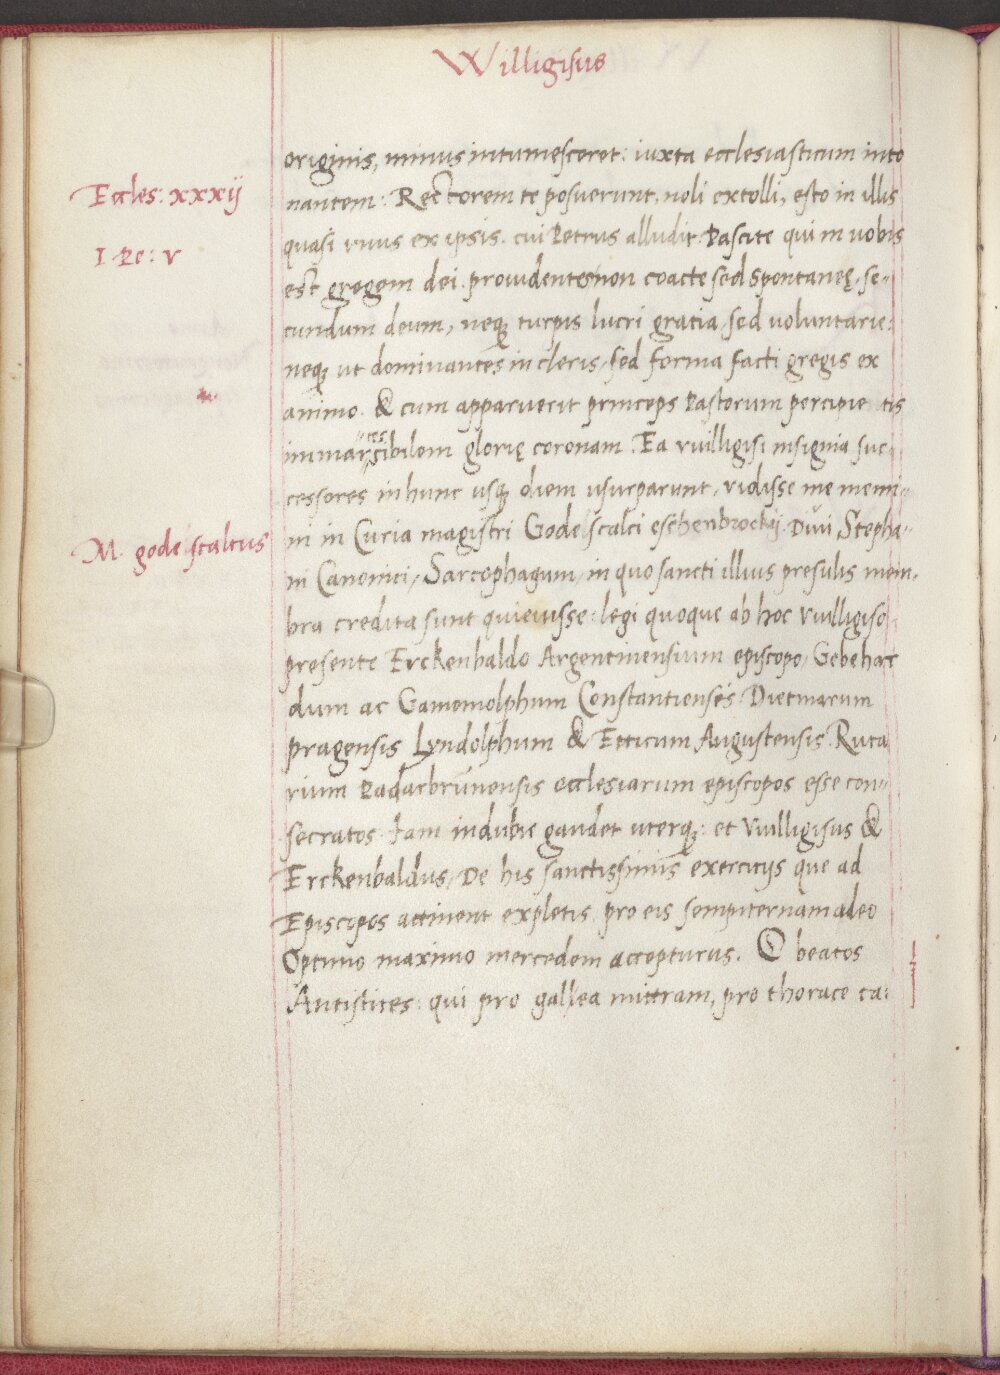 Willigisus
originis, minus intumesceret: iuxta ecclesiasticum into
Eccles: xxxij
nantem: Rectorem te posuerunt, noli extolli, esto in illis
quasi vnus ex ipsis. cui Petrus alludit. Pascite qui in uobis
I Pe: v
est gregem dei. prouidentes non coacte sed spontaneę, se-
cundum deum, neq; turpis lucri gratia, sed uoluntarie:
neq; ut dominantes in cleris, sed forma facti gregis ex
animo. & cum apparuerit princeps Pastorum percipie tis
immarcescibilem glorię coronam. Ea vuilligisi insignia suc-
cessores in hunc usq; diem usurparunt, vidisse me memi-
ni in Curia magistri Gode scalci eschenbrockij Diui Stepha-
M. gode scalcus
ni Canonici, Sarcophagum, in quo sancti illius presulis mem-
bra credita sunt quieuisse: legi quoque ab hoc vuilligiso
presente Erckenbaldo Argentinensium episcopo, Gebehar
dum ac Gamomolphum Constantienses Dietmarum
pragensis Lyndolphum & Etticum Augustensis. Ruta
rium Padarbrunensis ecclesiarum episcopos esse con-
secratos. Iam indubie gaudet uterq;: et vuilligisus &
Erckenbaldus, De his sanctissimis exercitijs que ad
Episcopos attinent expletis, pro eis sempiternam a deo
Optimo maximo mercedem accepturus. O beatos
Antistites: qui pro gallea mittram, pro thorace ca: